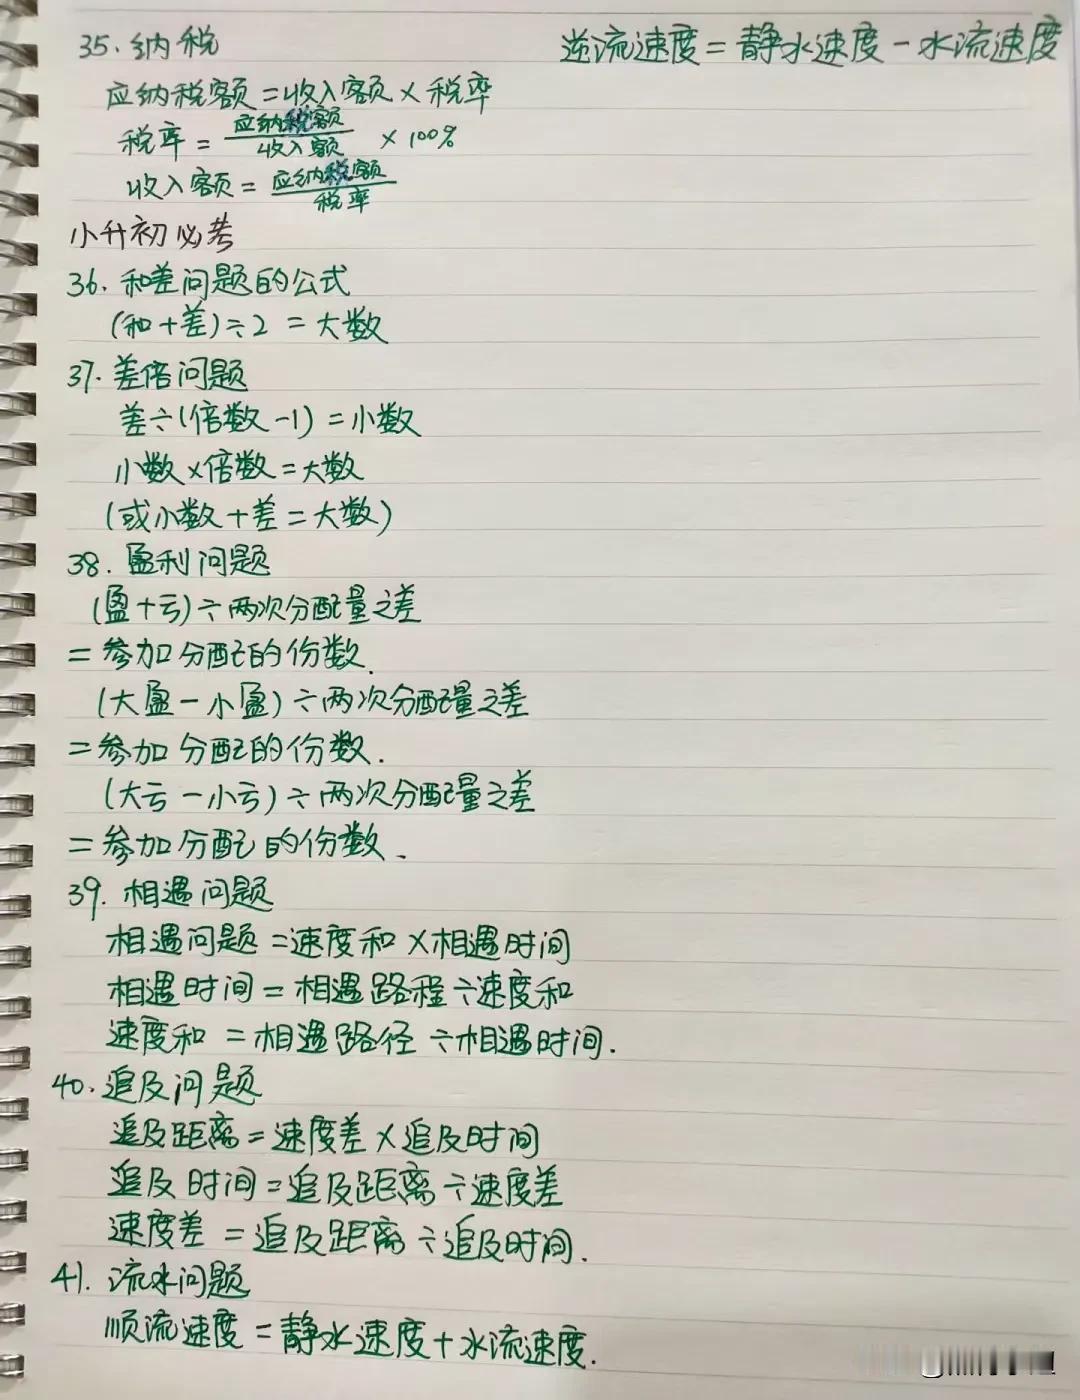 35. 纳税
逆流速度=静水速度-水流速度
应纳税额=收入额×税率
税率=应纳税额/收入额×100%
收入额=应纳税额/税率
小升初必考
36. 和差问题的公式
(和+差)÷2=大数
37. 差倍问题
差÷(倍数-1)=小数
小数×倍数=大数
(或小数+差=大数)
38. 盈利问题
(盈+亏)÷两次分配量之差
=参加分配的份数.
(大盈-小盈)÷两次分配量之差
=参加分配的份数.
(大亏-小亏)÷两次分配量之差
=参加分配的份数、
39. 相遇问题
相遇问题=速度和×相遇时间
相遇时间=相遇路程÷速度和
速度和=相遇路径÷相遇时间.
40. 追及问题
追及距离=速度差×追及时间
追及时间=追及距离÷速度差
速度差=追及距离÷追及时间.
41. 流水问题
顺流速度=静水速度+水流速度.